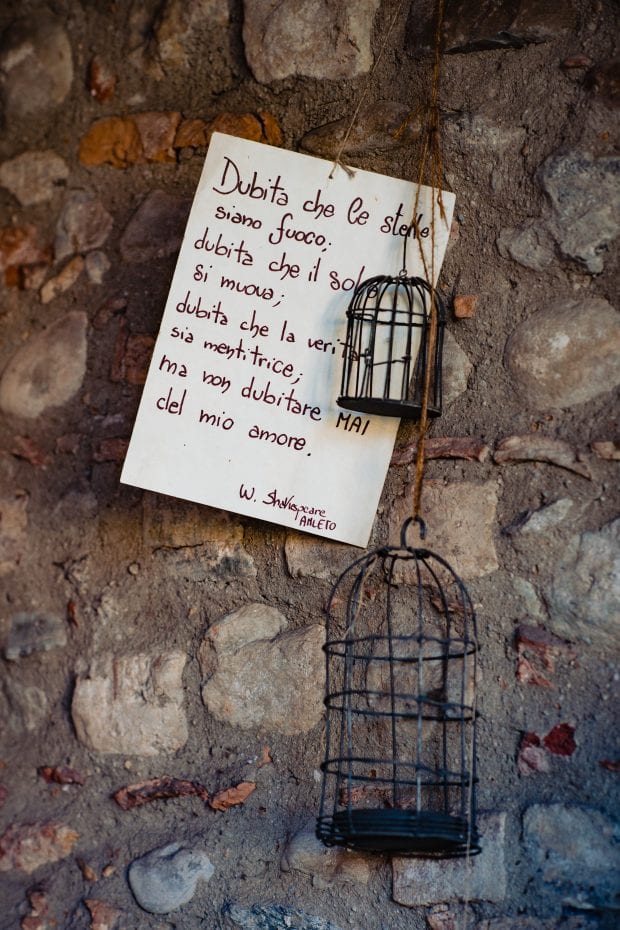 Dubita che le stelle
siano fuoco;
dubita che il sole
si muova;
dubita che la verità
sia mentitrice;
ma non dubitare MAI
del mio amore.
W. Shakespeare
AMLETO